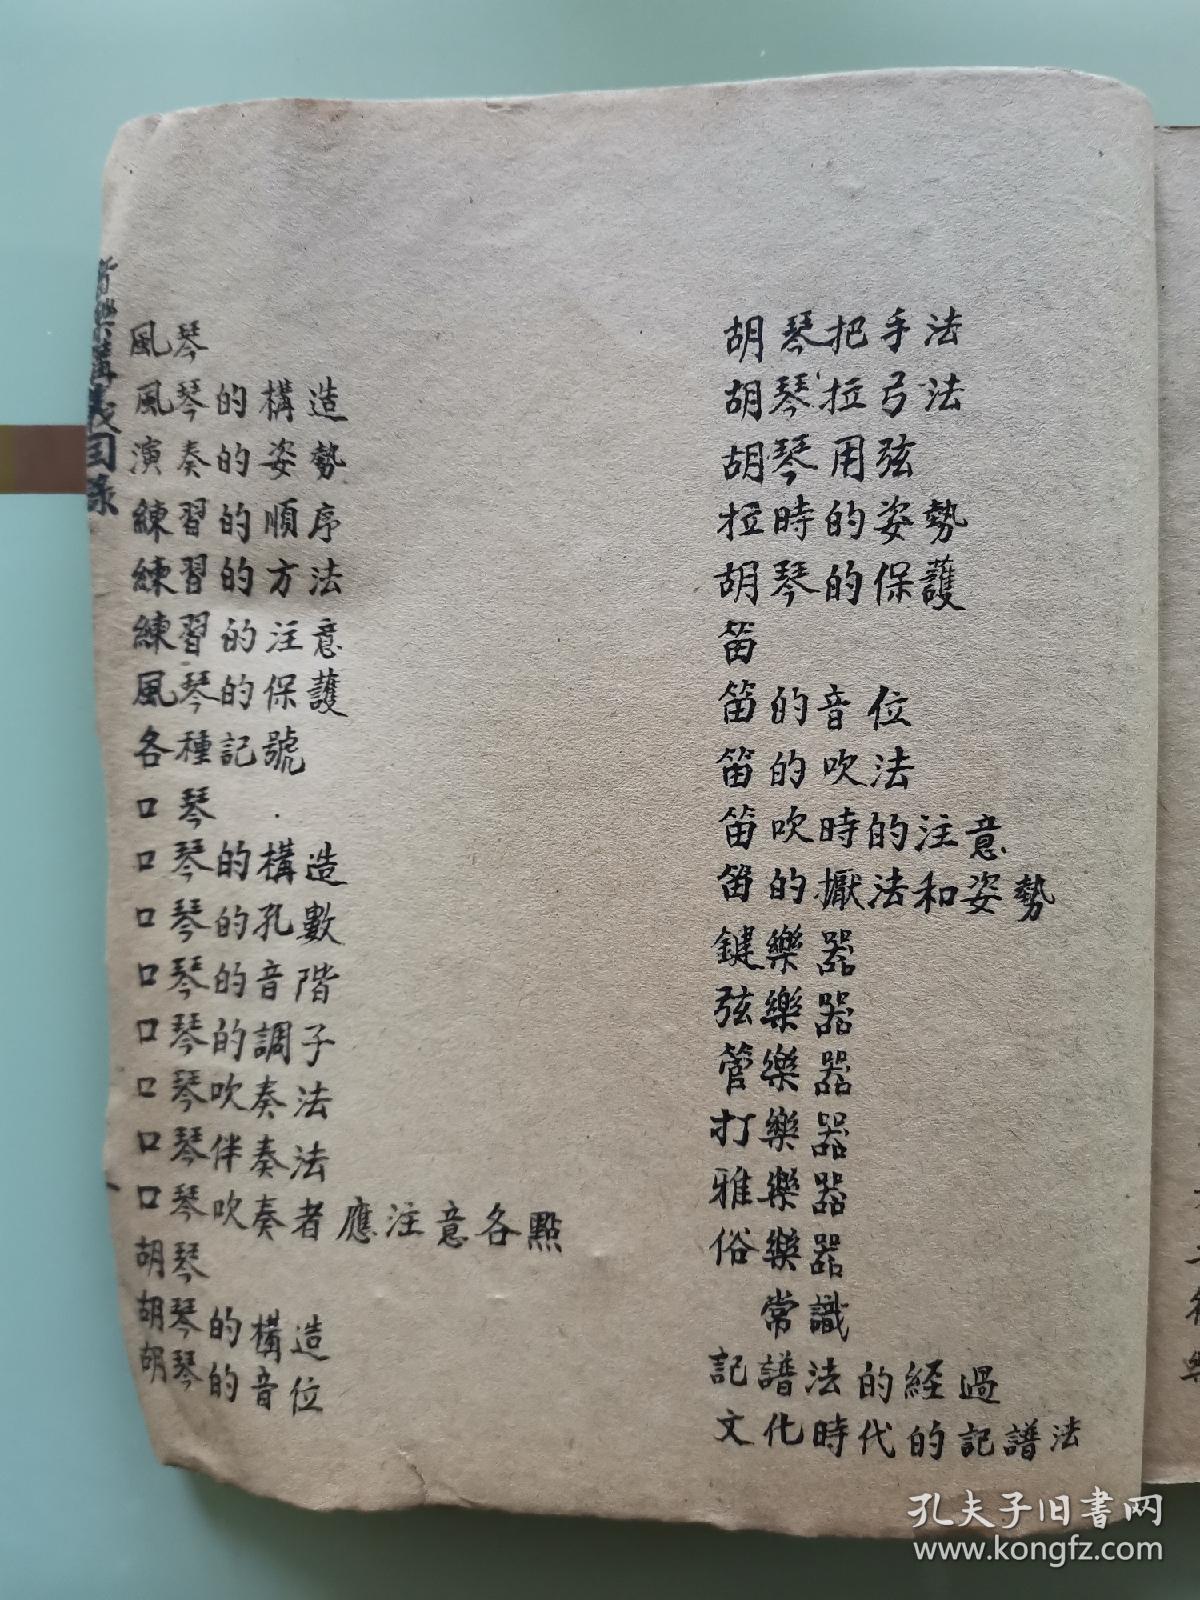 樂講義目錄
風琴
風琴的構造
演奏的姿勢
練習的順序
練習的方法
練習的注意
風琴的保護
各種記號
口琴
口琴的構造
口琴的孔數
口琴的音階
口琴的調子
口琴吹奏法
口琴伴奏法
口琴吹奏者應注意各點
胡琴
胡琴的構造
胡琴的音位
胡琴把手法
胡琴拉弓法
胡琴用弦
拉時的姿勢
胡琴的保護
笛
笛的音位
笛的吹法
笛吹時的注意
笛的擫法和姿勢
鍵樂器
弦樂器
管樂器
打樂器
雅樂器
俗樂器
常識
記譜法的經過
文化時代的記譜法
孔夫子旧书网
www.kongfz.com